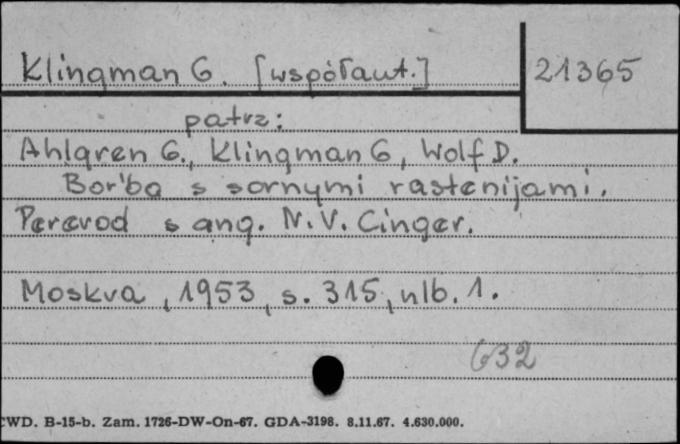 Klingman G. [współaut.] 21365
patrz:
Ahlgren G., Klingman G, Wolf D.
Bor'ba s sornymi rastenijami.
Perevod s ang. N.V. Cinger.
Moskva, 1953, s. 315, nlb. 1.
632
CWD. B-15-b. Zam. 1726-DW-On-67. GDA-3198. 8.11.67. 4.630.000.